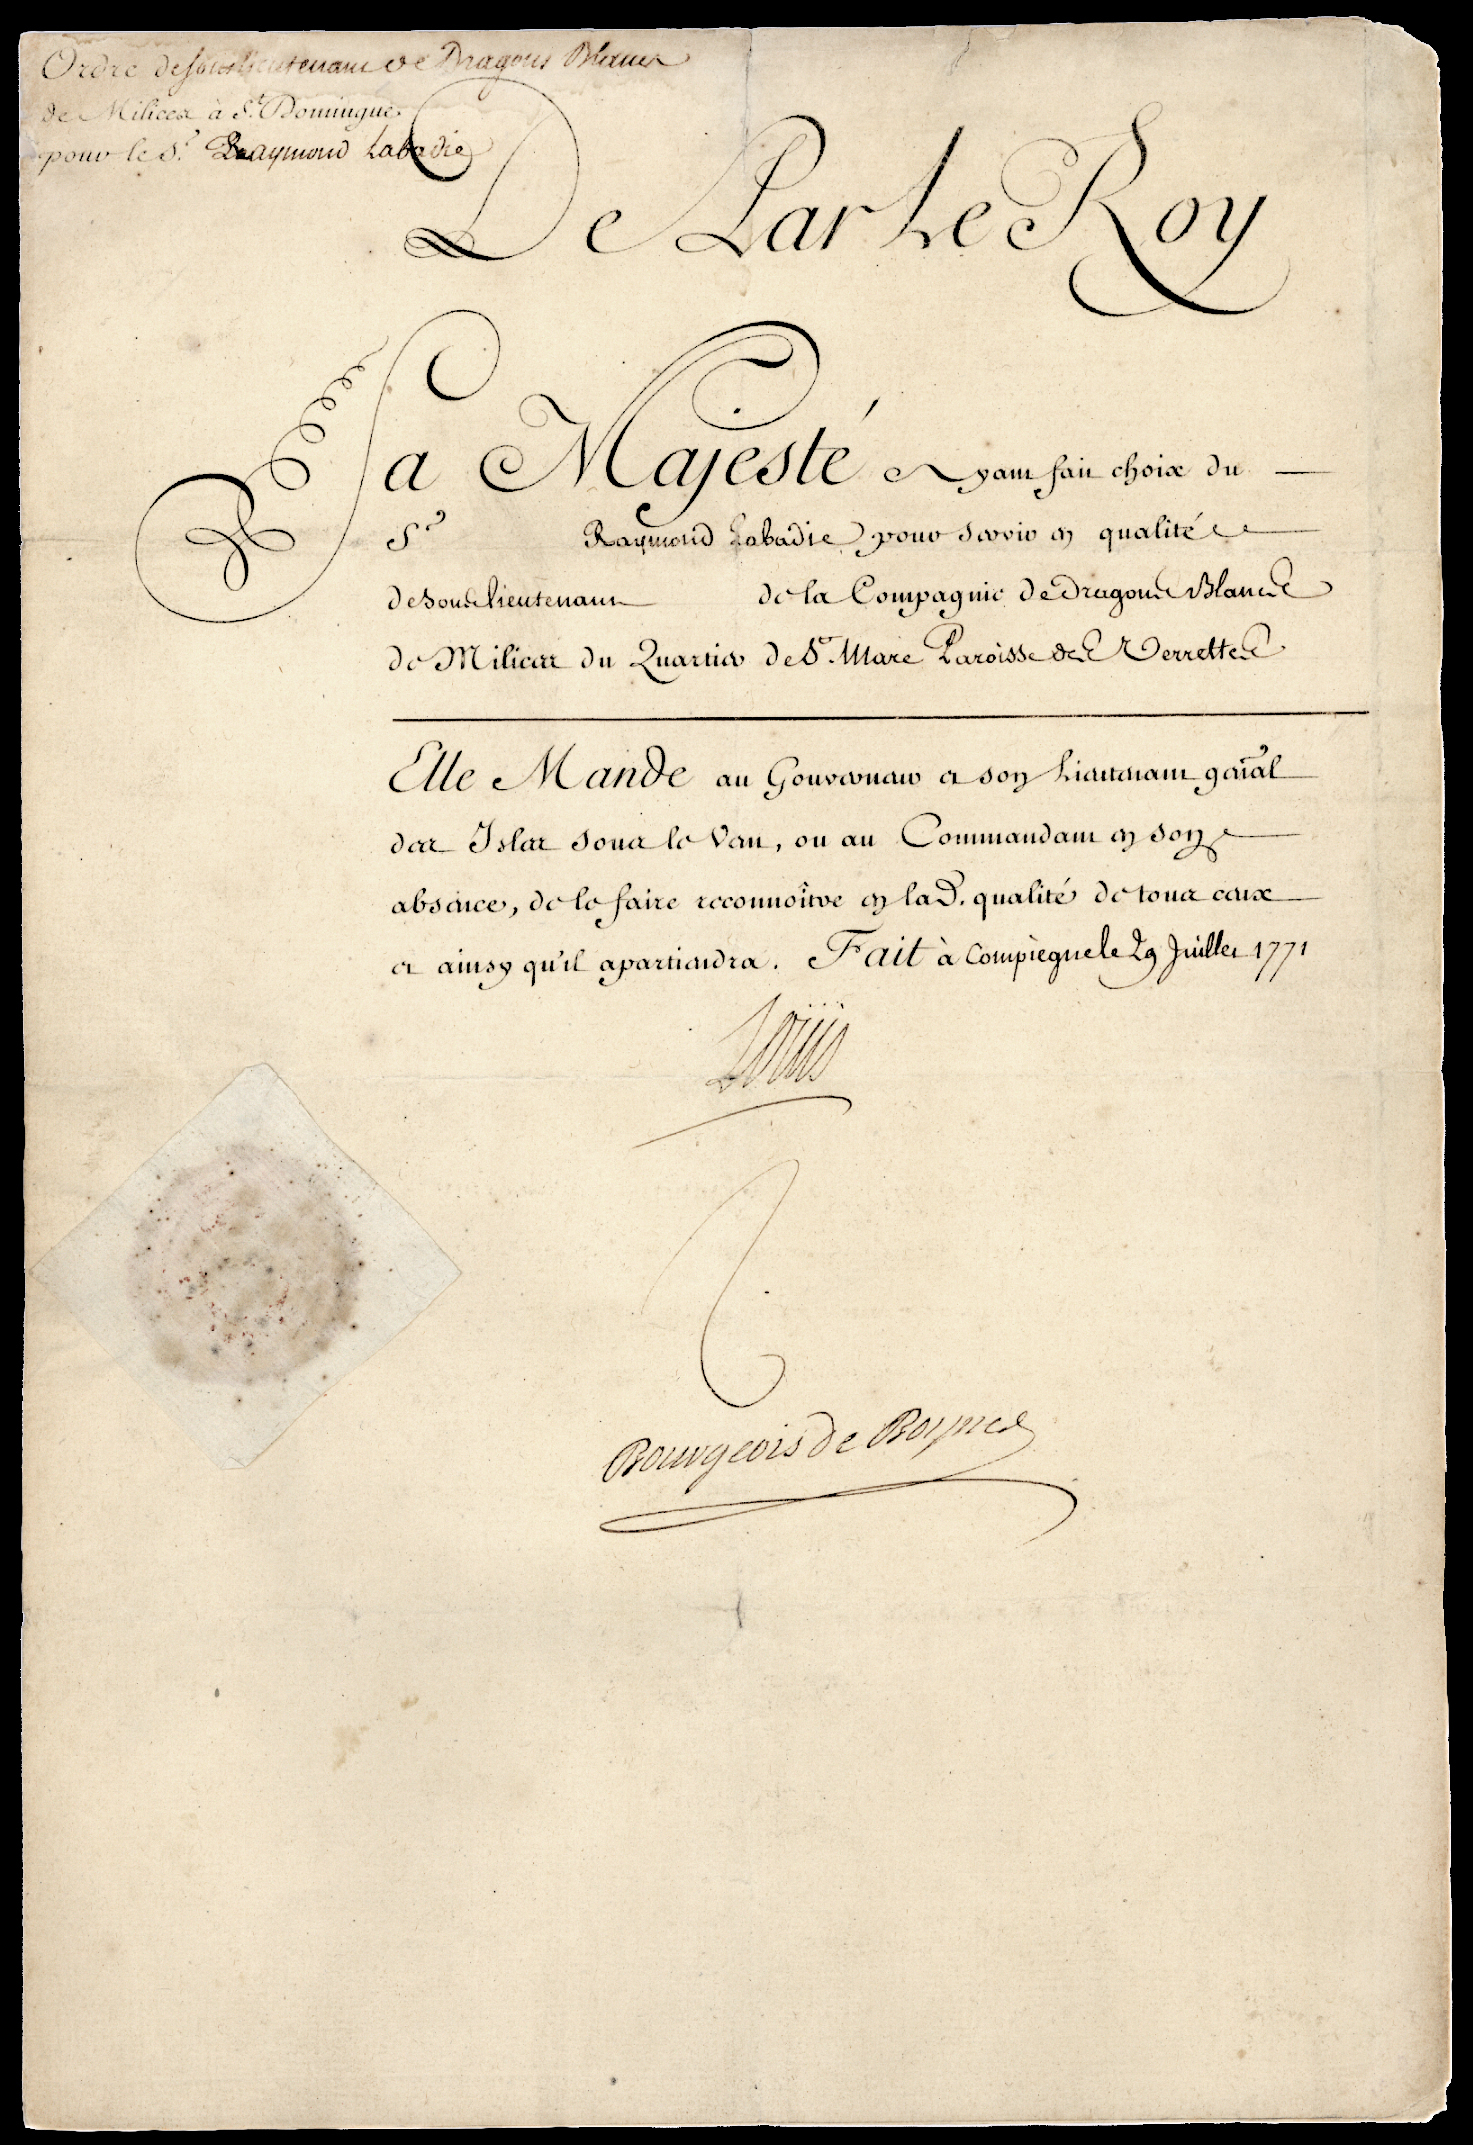 Ordre de sous lieutenant de Dragons Blancs
de Milices à St. Domingue
pour le Sr. Raymond Labadie
De Par Le Roy
Sa Majesté ayant fait choix du
Sr Raymond Labadie pour servir en qualité
de sous lieutenant de la Compagnie de Dragons Blancs
de Milices du Quartier de St. Marc Paroisse des Verrettes
Elle Mande au Gouverneur et son Lieutenant gãral
des Isles sous le Vent, ou au Commandant en son
absence, de le faire reconnoître en lad. qualité de tous ceux
et ainsy qu'il apartiendra. Fait à Compiegne le 29 Juillet 1771
Louis
Bourgeois de Boynes